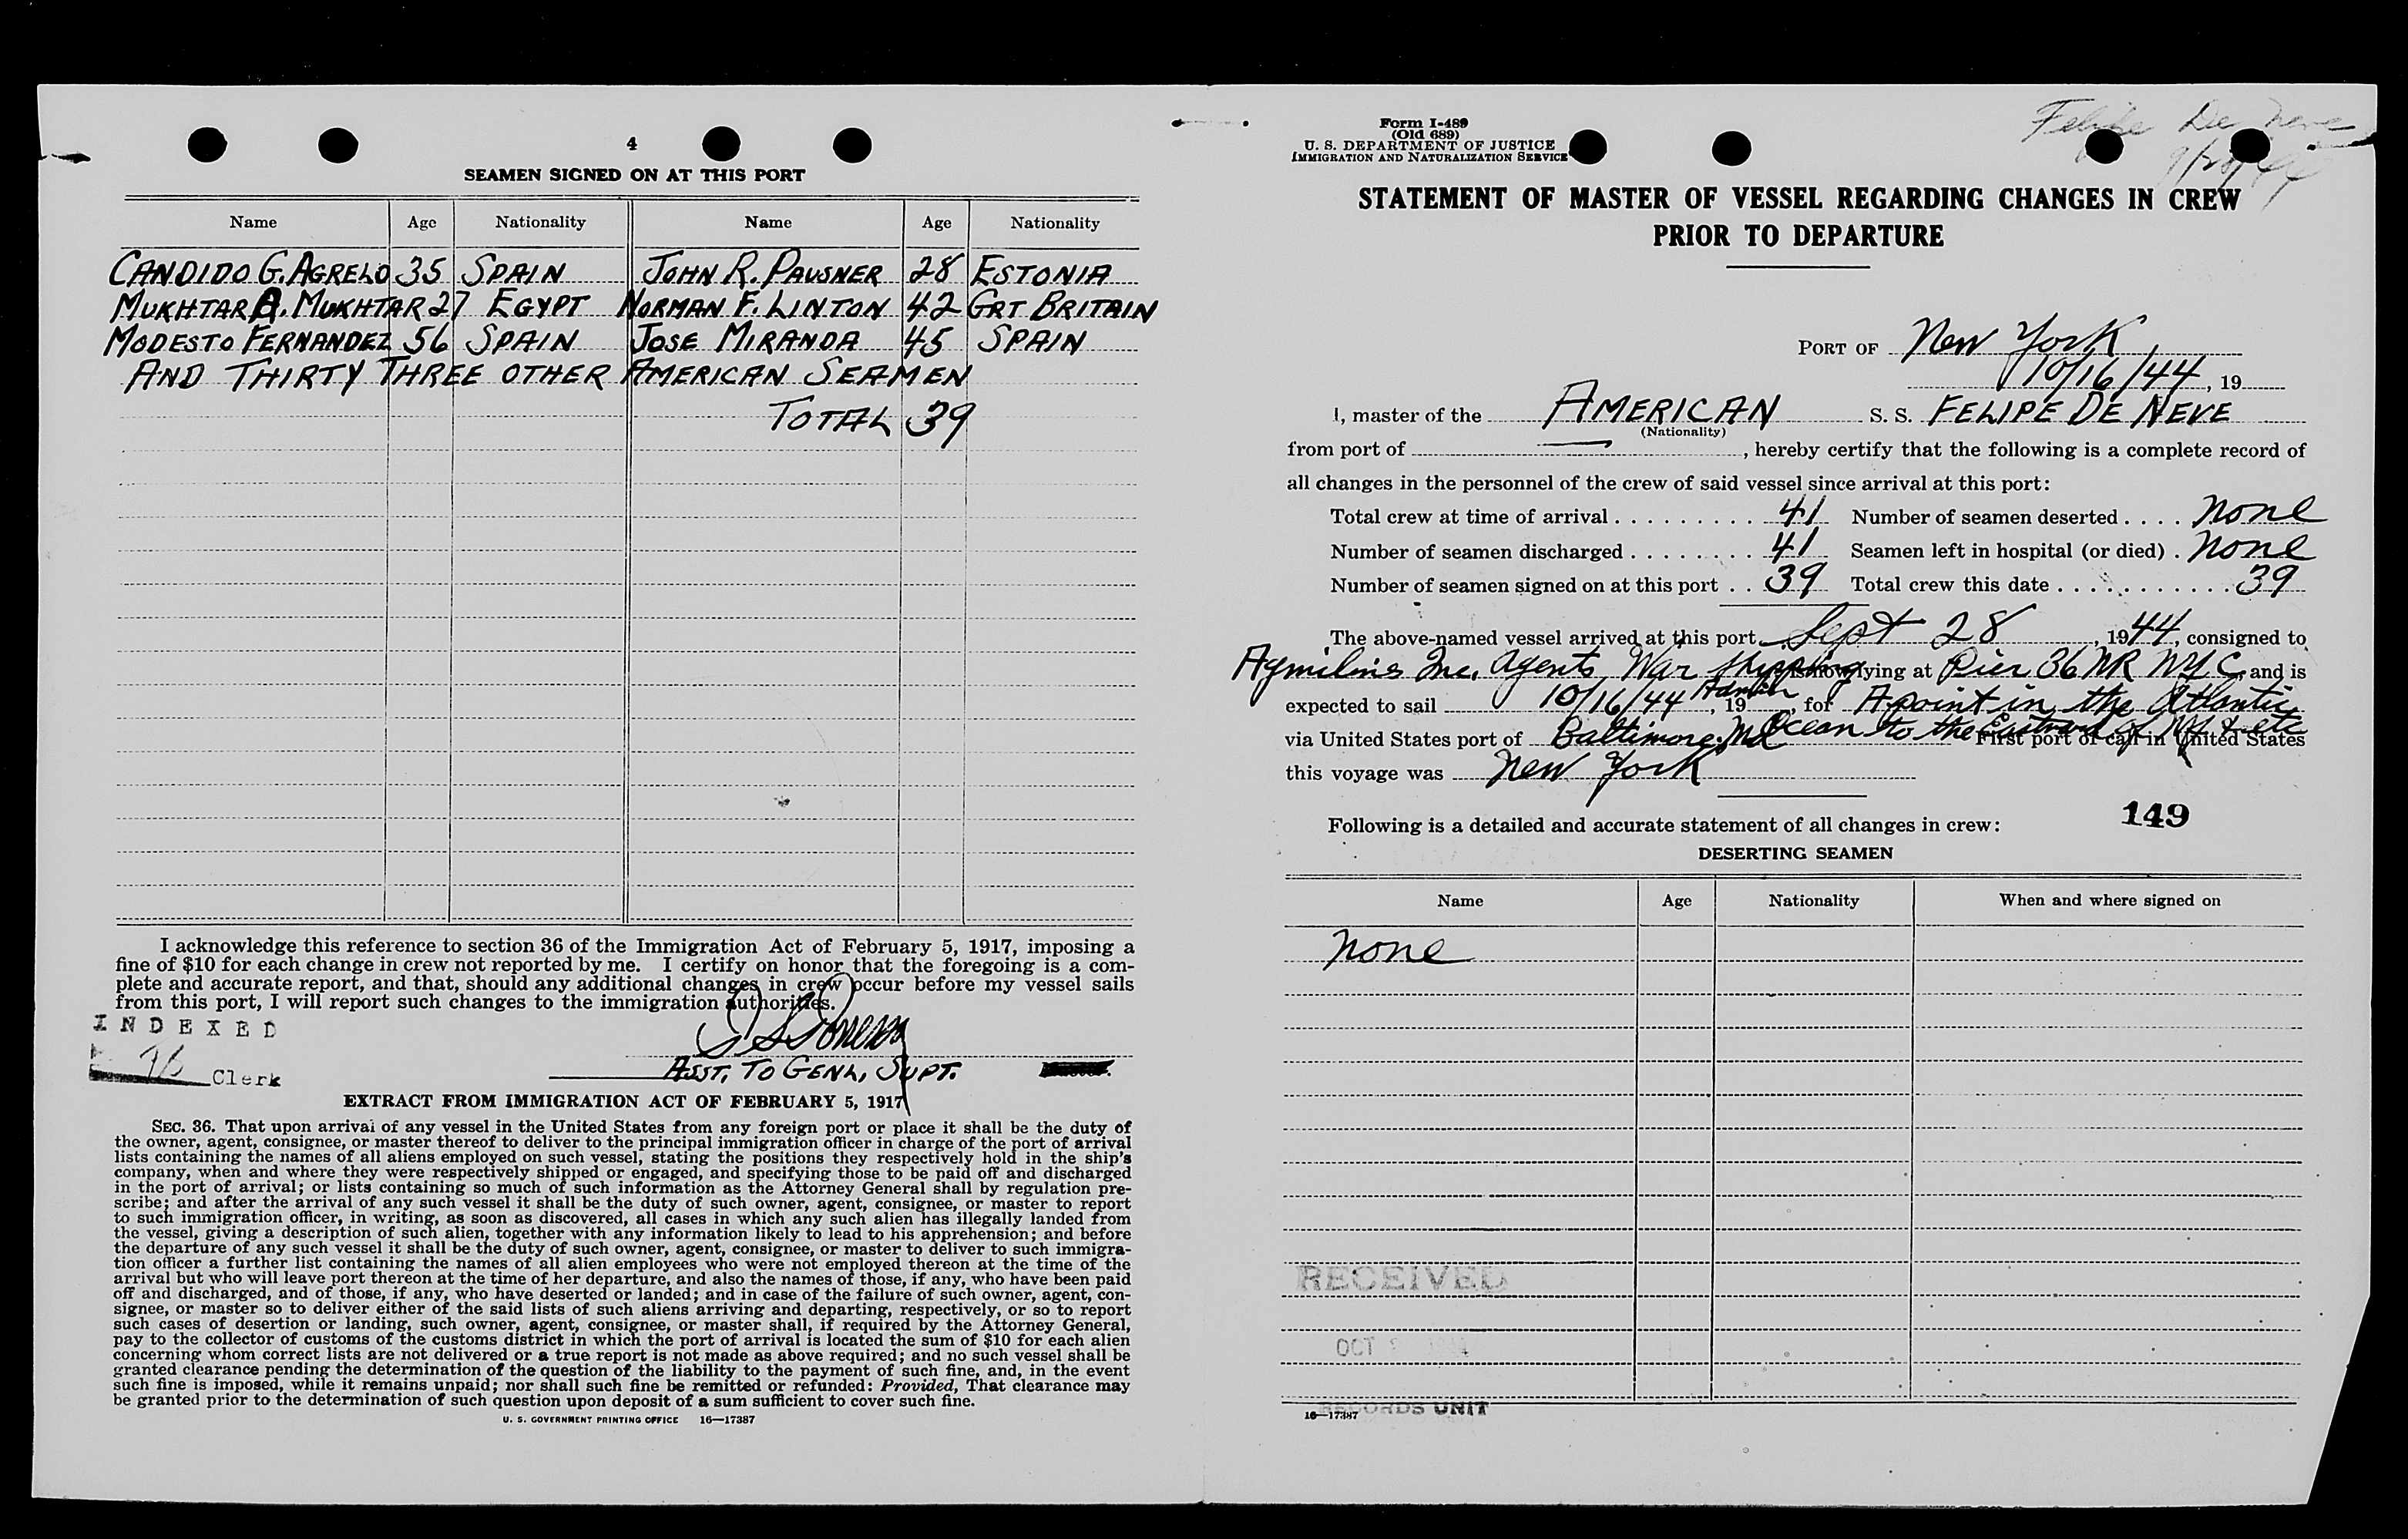 4
SEAMEN SIGNED ON AT THIS PORT
Name Age Nationality Name Age Nationality
CANDIDO G. AGRELO 35 SPAIN JOHN R. PAUSNER 28 ESTONIA
MUKHTAR A. MUKHTAR 27 EGYPT NORMAN F. LINTON 42 GRT BRITAIN
MODESTO FERNANDEZ 56 SPAIN JOSE MIRANDA 45 SPAIN
AND THIRTY THREE OTHER AMERICAN SEAMEN
TOTAL 39
I acknowledge this reference to section 36 of the Immigration Act of February 5, 1917, imposing a
fine of $10 for each change in crew not reported by me. I certify on honor that the foregoing is a com-
plete and accurate report, and that, should any additional changes in crew occur before my vessel sails
from this port, I will report such changes to the immigration authorities.
INDEXED
Clerk
ASST. TO GENL. SUPT.
EXTRACT FROM IMMIGRATION ACT OF FEBRUARY 5, 1917
SEC. 36. That upon arrival of any vessel in the United States from any foreign port or place it shall be the duty of
the owner, agent, consignee, or master thereof to deliver to the principal immigration officer in charge of the port of arrival
lists containing the names of all aliens employed on such vessel, stating the positions they respectively hold in the ship's
company, when and where they were respectively shipped or engaged, and specifying those to be paid off and discharged
in the port of arrival; or lists containing so much of such information as the Attorney General shall by regulation pre-
scribe; and after the arrival of any such vessel it shall be the duty of such owner, agent, consignee, or master to report
to such immigration officer, in writing, as soon as discovered, all cases in which any such alien has illegally landed from
the vessel, giving a description of such alien, together with any information likely to lead to his apprehension; and before
the departure of any such vessel it shall be the duty of such owner, agent, consignee, or master to deliver to such immigra-
tion officer a further list containing the names of all alien employees who were not employed thereon at the time of the
arrival but who will leave port thereon at the time of her departure, and also the names of those, if any, who have been paid
off and discharged, and of those, if any, who have deserted or landed; and in case of the failure of such owner, agent, con-
signee, or master so to deliver either of the said lists of such aliens arriving and departing, respectively, or so to report
such cases of desertion or landing, such owner, agent, consignee, or master shall, if required by the Attorney General,
pay to the collector of customs of the customs district in which the port of arrival is located the sum of $10 for each alien
concerning whom correct lists are not delivered or a true report is not made as above required; and no such vessel shall be
granted clearance pending the determination of the question of the liability to the payment of such fine, and, in the event
such fine is imposed, while it remains unpaid; nor shall such fine be remitted or refunded: Provided, That clearance may
be granted prior to the determination of such question upon deposit of a sum sufficient to cover such fine.
U. S. GOVERNMENT PRINTING OFFICE 16—17387
Form I-489
(Old 689)
U. S. DEPARTMENT OF JUSTICE
IMMIGRATION AND NATURALIZATION SERVICE
Felipe De Neve
STATEMENT OF MASTER OF VESSEL REGARDING CHANGES IN CREW
PRIOR TO DEPARTURE
PORT OF New York
10/16/44, 19
I, master of the AMERICAN S. S. FELIPE DE NEVE
(Nationality)
from port of —, hereby certify that the following is a complete record of
all changes in the personnel of the crew of said vessel since arrival at this port:
Total crew at time of arrival 41 Number of seamen deserted none
Number of seamen discharged 41 Seamen left in hospital (or died) none
Number of seamen signed on at this port 39 Total crew this date 39
The above-named vessel arrived at this port Sept 28, 1944, consigned to
Agmilines Inc. Agents War Shipping Admin is now lying at Pier 36 NR NYC and is
expected to sail 10/16/44, 19, for A point in the Atlantic
Ocean to the Eastward of NY & etc
via United States port of Baltimore, Md First port of call in United States
this voyage was New York
149
Following is a detailed and accurate statement of all changes in crew:
DESERTING SEAMEN
Name Age Nationality When and where signed on
none
RECEIVED
OCT
RECORDS UNIT
16—17387